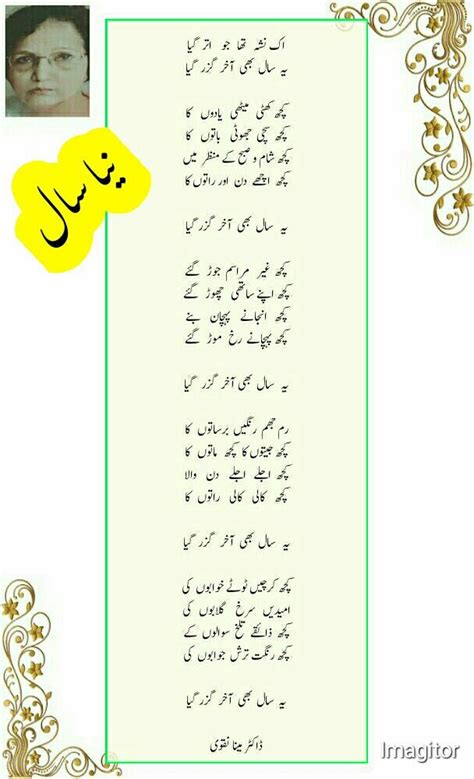 نیا سال
اک نشہ تھا جو اتر گیا
یہ سال بھی آخر گزر گیا
کچھ کھٹی میٹھی یادوں کا
کچھ سچی جھوٹی باتوں کا
کچھ شام و صبح کے منظر میں
کچھ اچھے دن اور راتوں کا
یہ سال بھی آخر گزر گیا
کچھ غیر مراسم جوڑ گئے
کچھ اپنے ساتھی چھوڑ گئے
کچھ انجانے پہچان بنے
کچھ پہچانے رخ موڑ گئے
یہ سال بھی آخر گزر گیا
رم جھم رنگیں برساتوں کا
کچھ جیتوں کا کچھ ماتوں کا
کچھ اجلے اجلے دن والا
کچھ کالی کالی راتوں کا
یہ سال بھی آخر گزر گیا
کچھ کرچیں ٹوٹے خوابوں کی
امیدیں سرخ گلابوں کی
کچھ ذائقے تلخ سوالوں کے
کچھ رنگت ترش جوابوں کی
یہ سال بھی آخر گزر گیا
ڈاکٹر مینا نقوی
Imagitor